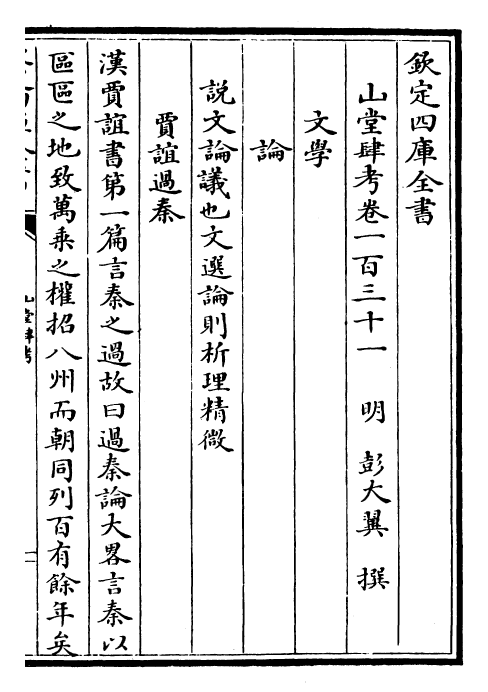 欽定四庫全書
山堂肆考卷一百三十一　明　彭大翼　撰
文學
論
說文論議也文選論則析理精微
賈誼過秦
漢賈誼書第一篇言秦之過故曰過秦論大畧言秦以
區區之地致萬乘之權招八州而朝同列百有餘年矣
山堂肆考